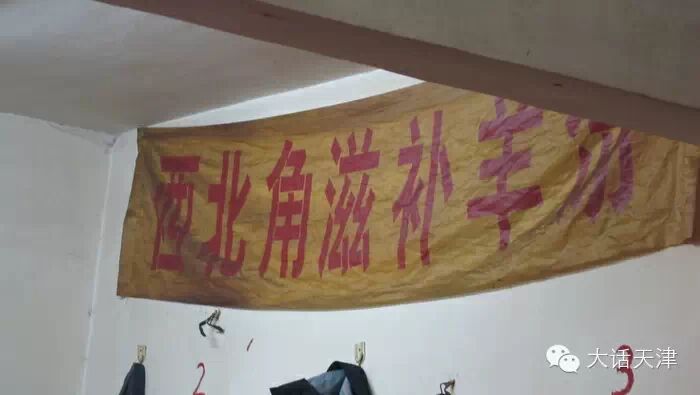 西北角滋补羊汤
大话天津